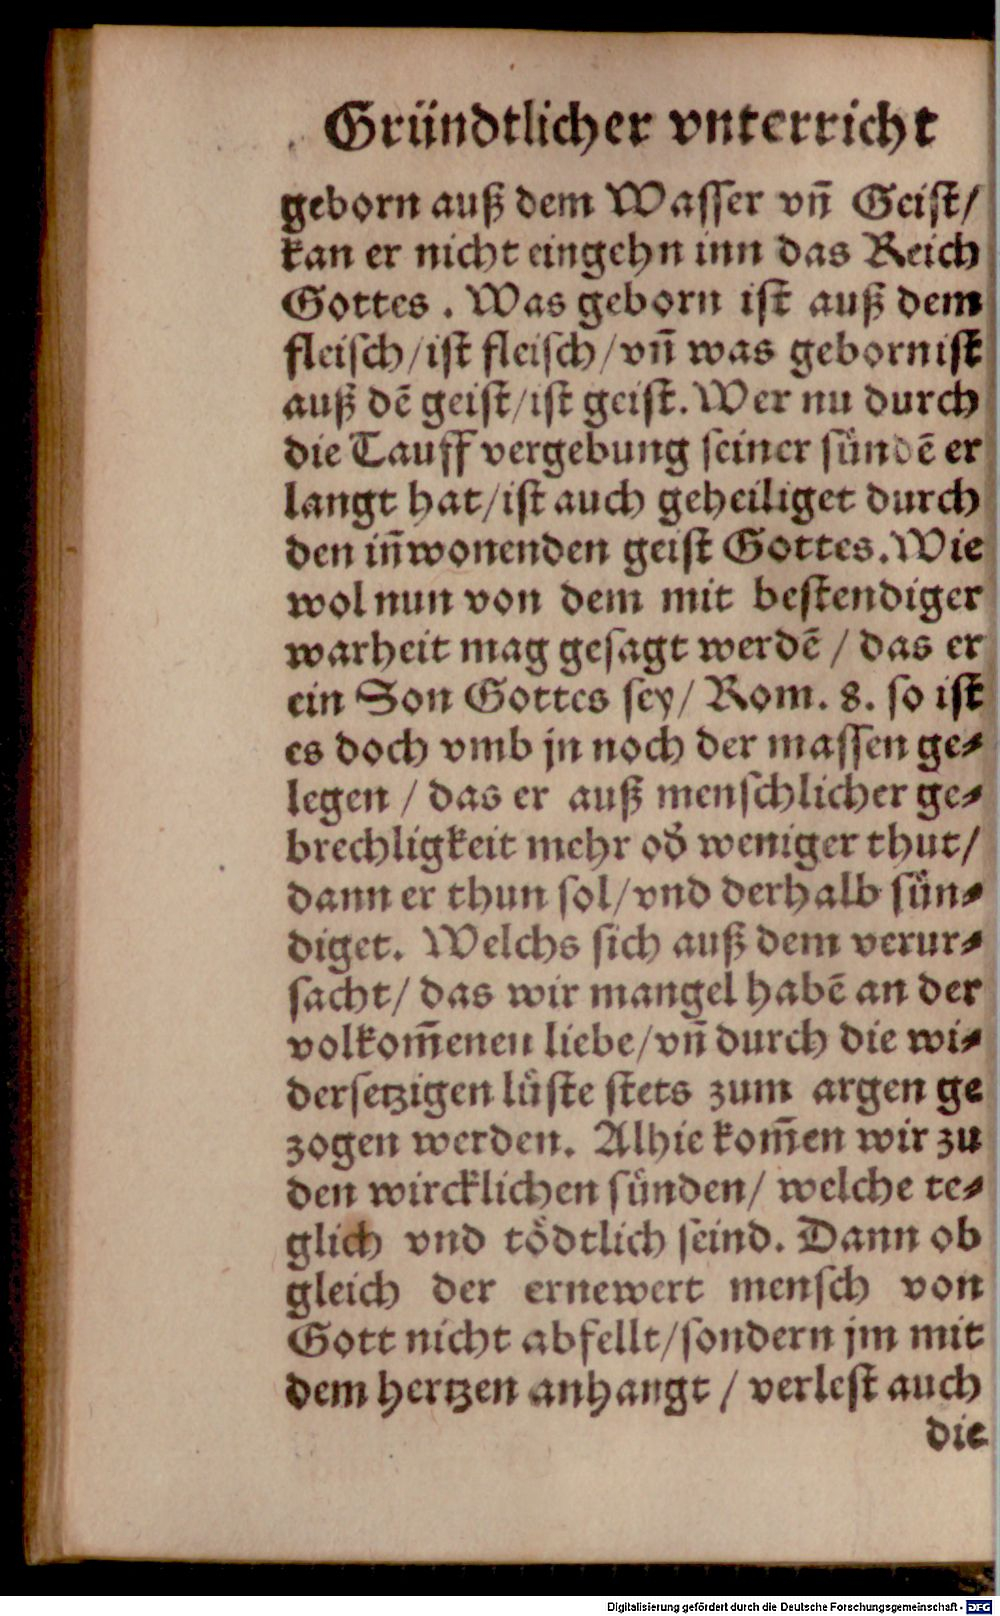 Gründtlicher vnterricht
geborn auß dem Wasser vn̄ Geist/
kan er nicht eingehn inn das Reich
Gottes. Was geborn ist auß dem
fleisch/ist fleisch/vn̄ was gebornist
auß dē geist/ist geist. Wer nu durch
die Tauff vergebung seiner sündē er
langt hat/ist auch geheiliget durch
den in̄wonenden geist Gottes. Wie
wol nun von dem mit bestendiger
warheit mag gesagt werdē / das er
ein Son Gottes sey/ Rom. 8. so ist
es doch vmb jn noch der massen ge⸗
legen / das er auß menschlicher ge⸗
brechligkeit mehr od̄ weniger thut/
dann er thun sol/vnd derhalb sün⸗
diget. Welchs sich auß dem verur⸗
sacht/ das wir mangel habē an der
volkom̄enen liebe/vn̄ durch die wi⸗
dersetzigen lüste stets zum argen ge
zogen werden. Alhie kom̄en wir zu
den wircklichen sünden/ welche te⸗
glich vnd tödtlich seind. Dann ob
gleich der ernewert mensch von
Gott nicht abfellt/sondern jm mit
dem hertzen anhangt / verlest auch
die
Digitalisierung gefördert durch die Deutsche Forschungsgemeinschaft - DFG